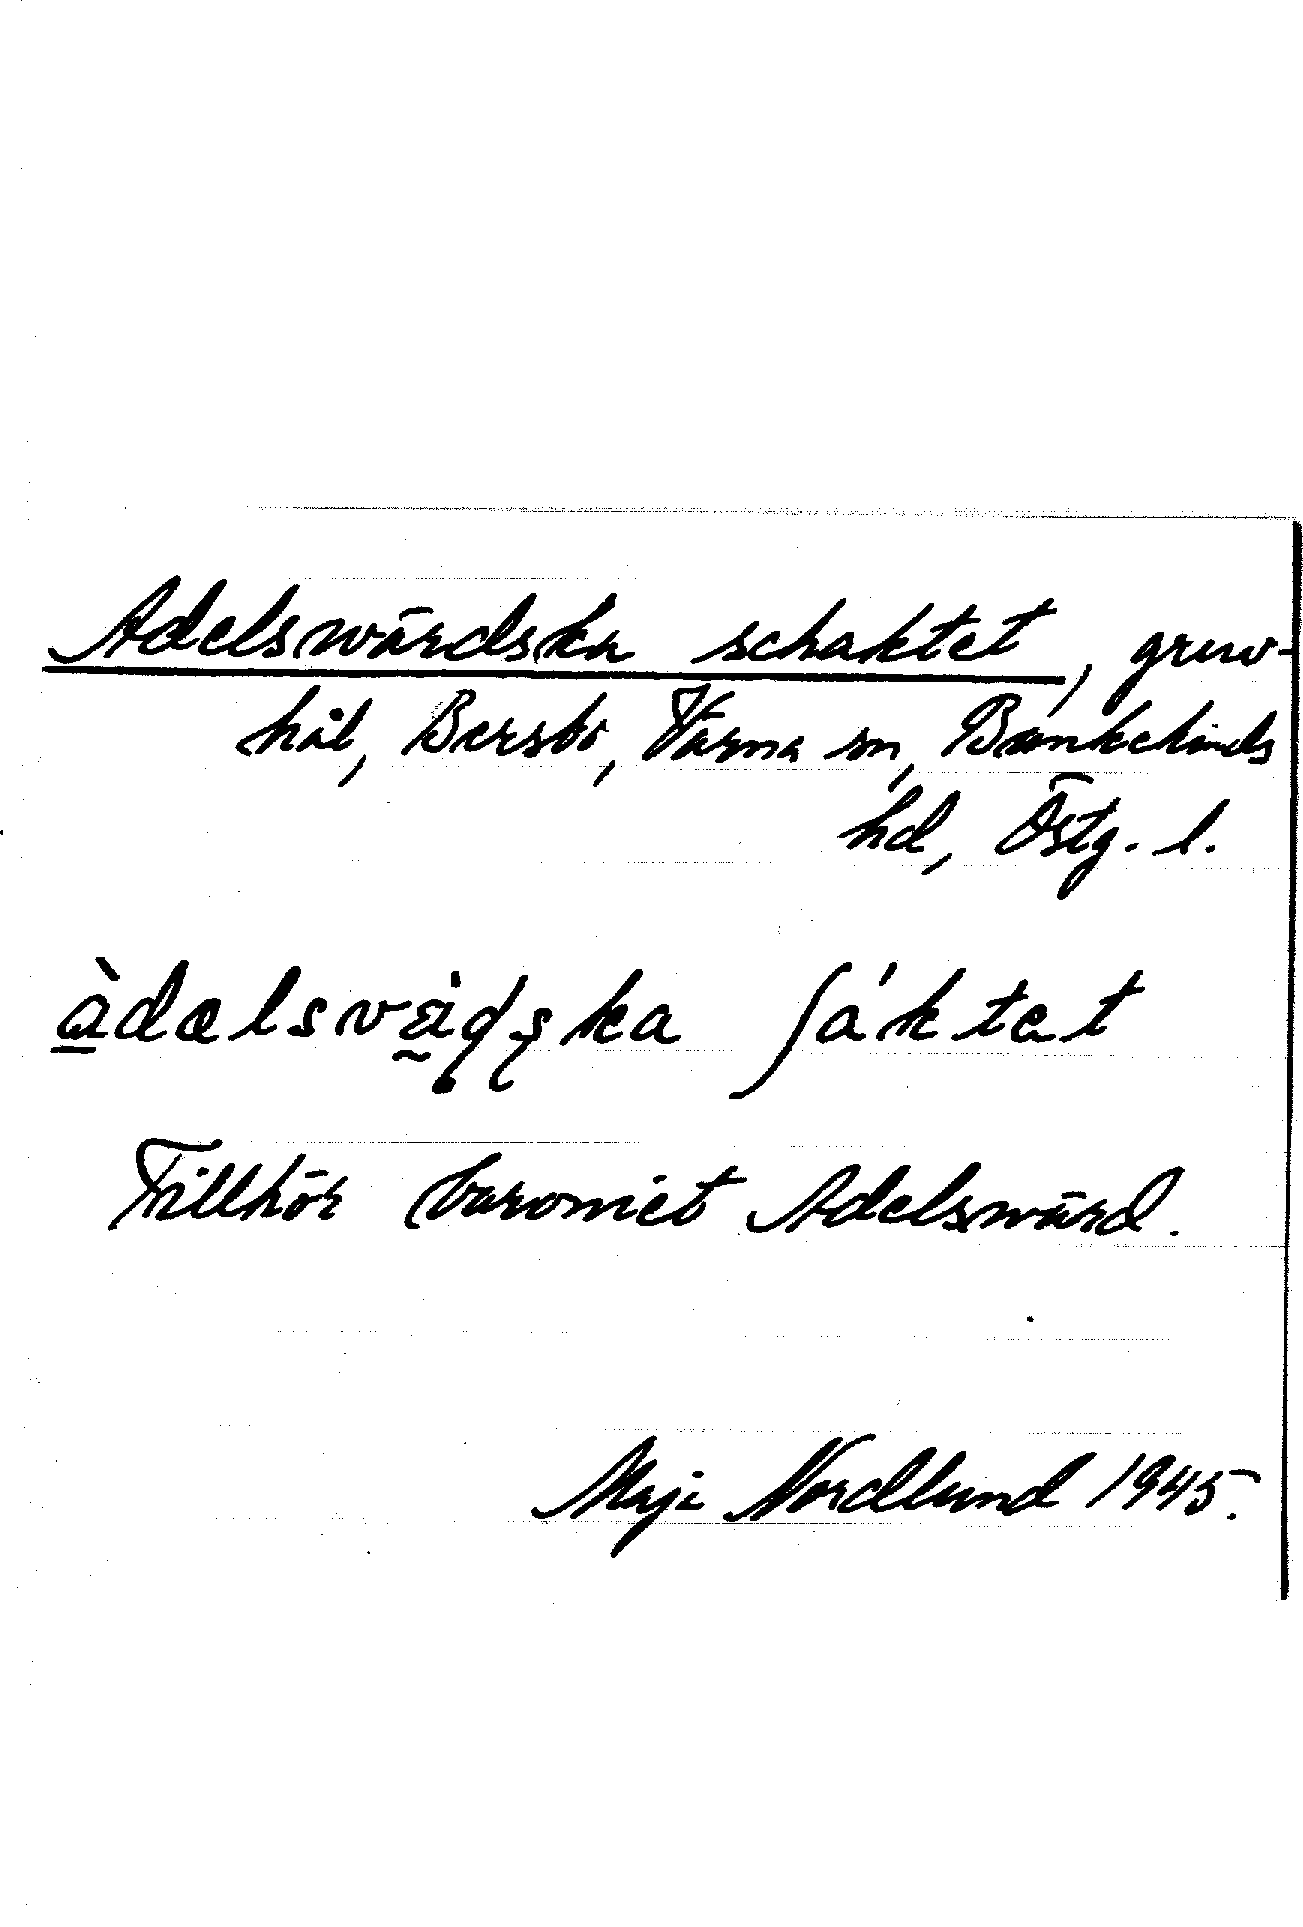 Adelswärdska schaktet, gruv-
hål, Bersbo, Värna sn, Bankekinds
hd, Östg. l.
àdælsvä̀ḍṣka ʃáktet
Tillhör baroniet Adelswärd.
Maja Nordlund 1945.